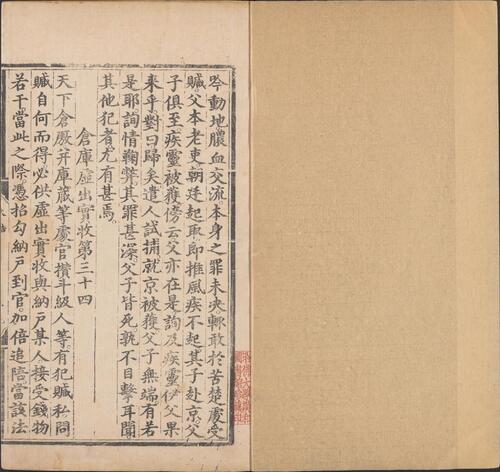 呤動地膿血交流本身之罪未決輒敢於苦楚處受
贓父本老吏朝廷起取即推風疾不起其子赴京父
子俱至疾靈被獲傍云父亦在是詢及疾靈伊父果
来乎對曰歸矣遣人試捕就京被獲父子無端有若
是耶詢情鞠弊其罪甚深父子皆死孰不目擊耳聞
其他犯者尤有甚焉
倉庫虛出實收第三十四
天下倉廒并庫藏等處官攢斗級人等有犯贓私問
贓自何而得必供虛出實收與納戶某人接受錢物
若干當此之際憑招勾納戶到官加倍追賠當該法